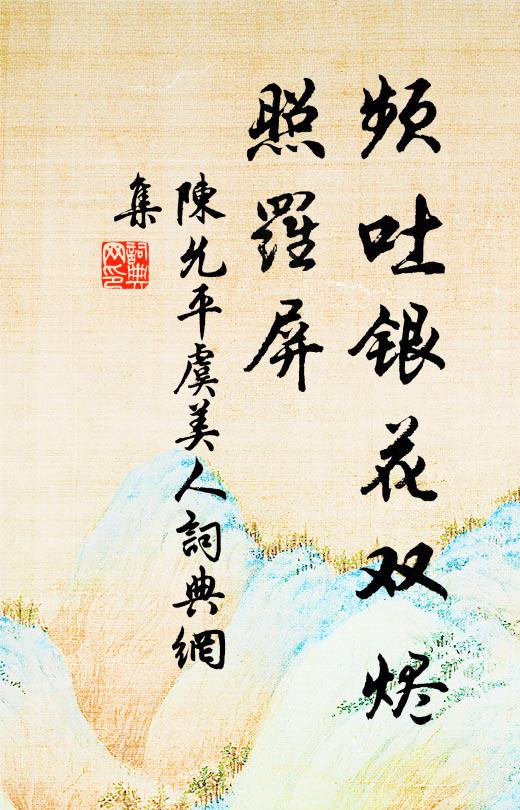 频吐银花双烬
照羅屏
陳允平虞美人詞典網
集
詞典网印